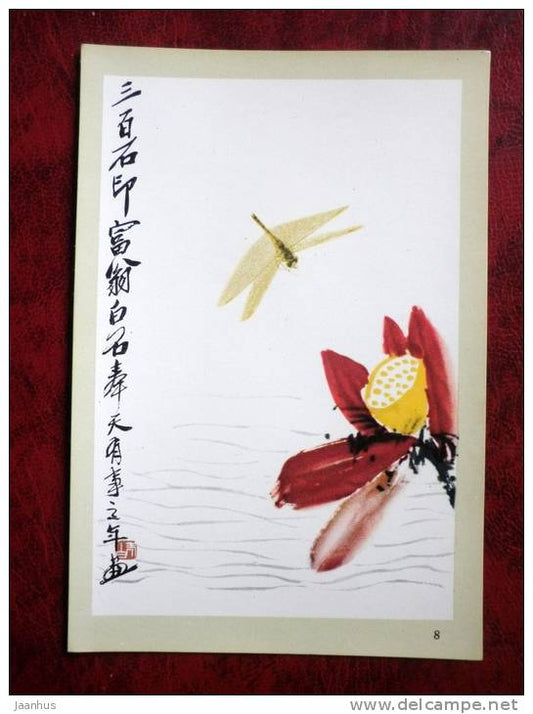 三百石印富翁白石奉天有事之年画
8
jaanhus
www.delcampe.net